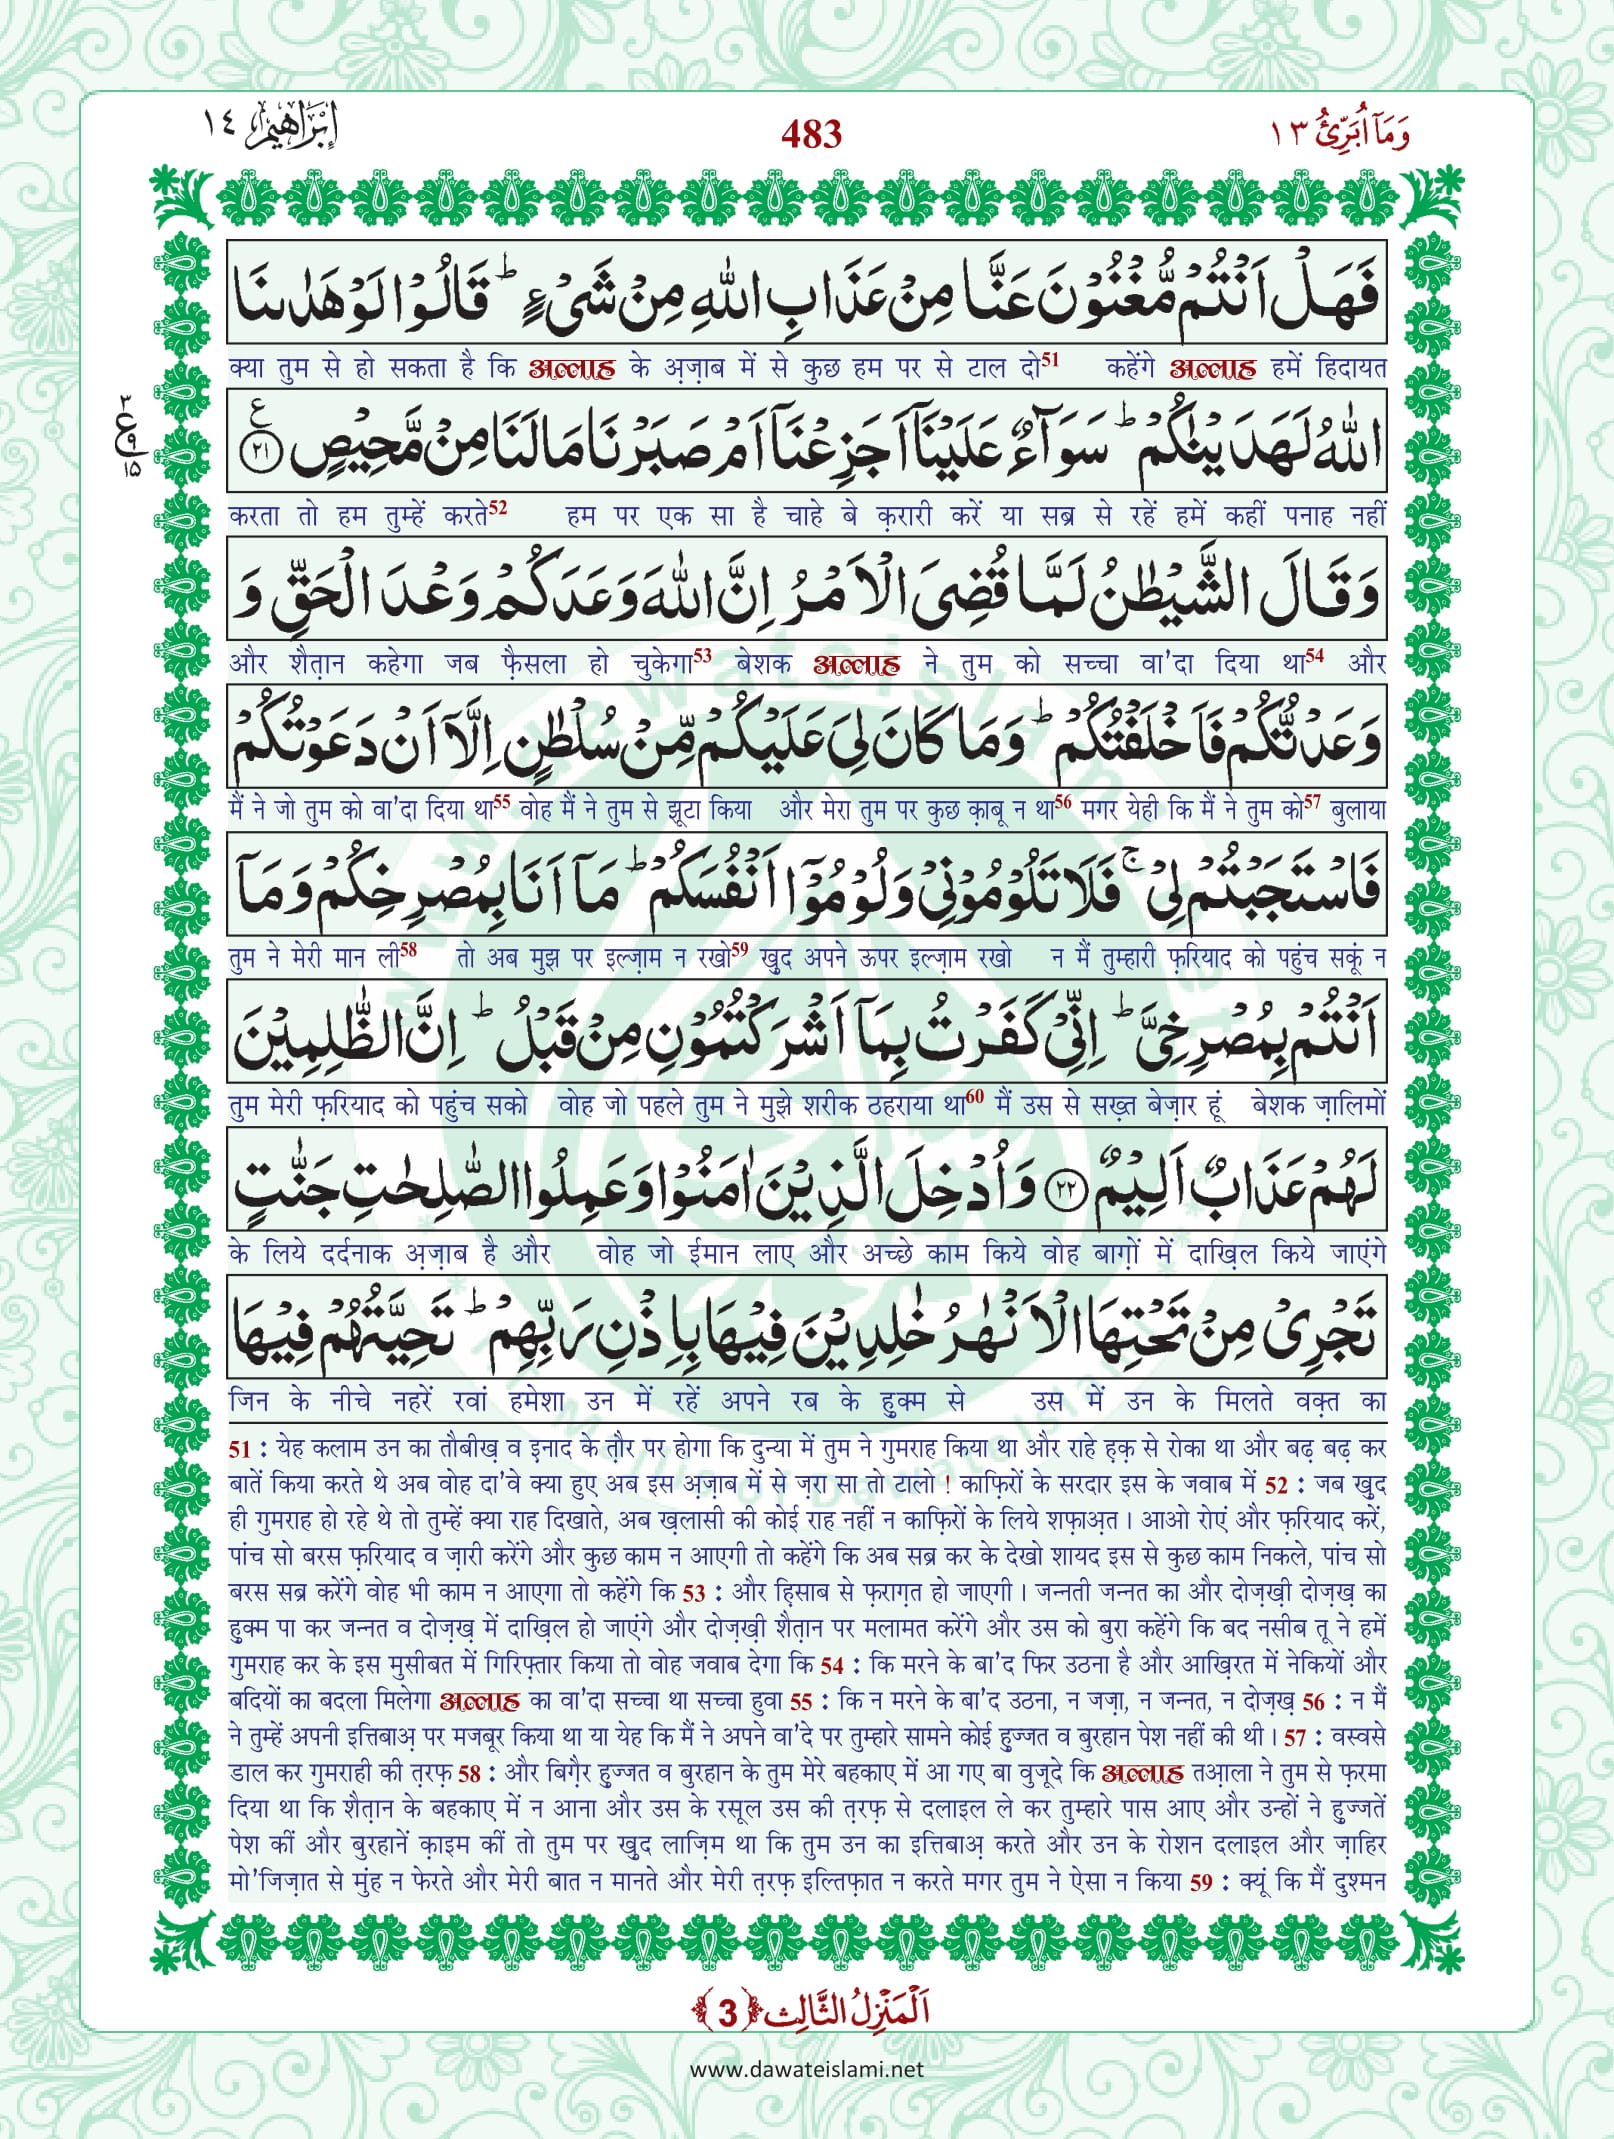 اِبْرٰاهِيْم ١٤
483
وَمَاۤ اُبَرِّئُ ١٣
فَهَلْ اَنْتُمْ مُّغْنُوْنَ عَنَّا مِنْ عَذَابِ اللّٰهِ مِنْ شَیْءٍ ؕ قَالُوْا لَوْ هَدٰىنَا
क्या तुम से हो सकता है कि अल्लाह के अ़ज़ाब में से कुछ हम पर से टाल दो51 कहेंगे अल्लाह हमें हिदायत
٣
ع
٩
١٥
اللّٰهُ لَهَدَیْنٰكُمْ ؕ سَوَآءٌ عَلَیْنَاۤ اَجَزِعْنَاۤ اَمْ صَبَرْنَا مَا لَنَا مِنْ مَّحِیْصٍ ﴿٢١﴾ ع
करता तो हम तुम्हें करते52 हम पर एक सा है चाहे बे क़रारी करें या सब्र से रहें हमें कहीं पनाह नहीं
وَقَالَ الشَّیْطٰنُ لَمَّا قُضِیَ الْاَمْرُ اِنَّ اللّٰهَ وَعَدَكُمْ وَعْدَ الْحَقِّ وَ
और शैत़ान कहेगा जब फ़ैसला हो चुकेगा53 बेशक अल्लाह ने तुम को सच्चा वा'दा दिया था54 और
وَعَدْتُّكُمْ فَاَخْلَفْتُكُمْ ؕ وَمَا كَانَ لِیَ عَلَیْكُمْ مِّنْ سُلْطٰنٍ اِلَّاۤ اَنْ دَعَوْتُكُمْ
मैं ने जो तुम को वा'दा दिया था55 वोह मैं ने तुम से झूटा किया और मेरा तुम पर कुछ क़ाबू न था56 मगर येही कि मैं ने तुम को57 बुलाया
فَاسْتَجَبْتُمْ لِیْ ۚ فَلَا تَلُوْمُوْنِیْ وَلُوْمُوْۤا اَنْفُسَكُمْ ؕ مَاۤ اَنَا بِمُصْرِخِكُمْ وَمَاۤ
तुम ने मेरी मान ली58 तो अब मुझ पर इल्ज़ाम न रखो59 खुद अपने ऊपर इल्ज़ाम रखो न मैं तुम्हारी फ़रियाद को पहुंच सकूं न
اَنْتُمْ بِمُصْرِخِیَّ ؕ اِنِّیْ كَفَرْتُ بِمَاۤ اَشْرَكْتُمُوْنِ مِنْ قَبْلُ ؕ اِنَّ الظّٰلِمِیْنَ
तुम मेरी फ़रियाद को पहुंच सको वोह जो पहले तुम ने मुझे शरीक ठहराया था60 मैं उस से सख़्त बेज़ार हूं बेशक ज़ालिमों
لَهُمْ عَذَابٌ اَلِیْمٌ ﴿٢٢﴾ وَاُدْخِلَ الَّذِیْنَ اٰمَنُوْا وَعَمِلُوا الصّٰلِحٰتِ جَنّٰتٍ
के लिये दर्दनाक अ़ज़ाब है और वोह जो ईमान लाए और अच्छे काम किये वोह बाग़ों में दाख़िल किये जाएंगे
تَجْرِیْ مِنْ تَحْتِهَا الْاَنْهٰرُ خٰلِدِیْنَ فِیْهَا بِاِذْنِ رَبِّهِمْ ؕ تَحِیَّتُهُمْ فِیْهَا
जिन के नीचे नहरें रवां हमेशा उन में रहें अपने रब के हुक्म से उस में उन के मिलते वक़्त का
51 : येह कलाम उन का तौबीख़ व इ़नाद के त़ौर पर होगा कि दुन्या में तुम ने गुमराह किया था और राहे ह़क़ से रोका था और बढ़ बढ़ कर
बातें किया करते थे अब वोह दा'वे क्या हुए अब इस अ़ज़ाब में से ज़रा सा तो टालो ! काफ़िरों के सरदार इस के जवाब में 52 : जब खुद
ही गुमराह हो रहे थे तो तुम्हें क्या राह दिखाते, अब ख़लासी की कोई राह नहीं न काफ़िरों के लिये शफ़ाअ़त । आओ रोएं और फ़रियाद करें,
पांच सो बरस फ़रियाद व ज़ारी करेंगे और कुछ काम न आएगी तो कहेंगे कि अब सब्र कर के देखो शायद इस से कुछ काम निकले, पांच सो
बरस सब्र करेंगे वोह भी काम न आएगा तो कहेंगे कि 53 : और ह़िसाब से फ़राग़त हो जाएगी । जन्नती जन्नत का और दोज़ख़ी दोज़ख़ का
हुक्म पा कर जन्नत व दोज़ख़ में दाख़िल हो जाएंगे और दोज़ख़ी शैत़ान पर मलामत करेंगे और उस को बुरा कहेंगे कि बद नसीब तू ने हमें
गुमराह कर के इस मुसीबत में गिरिफ़्तार किया तो वोह जवाब देगा कि 54 : कि मरने के बा'द फिर उठना है और आख़िरत में नेकियों और
बदियों का बदला मिलेगा अल्लाह का वा'दा सच्चा था सच्चा हुवा 55 : कि न मरने के बा'द उठना, न जज़ा, न जन्नत, न दोज़ख़ 56 : न मैं
ने तुम्हें अपनी इत्तिबाअ़ पर मजबूर किया था या येह कि मैं ने अपने वा'दे पर तुम्हारे सामने कोई हुज्जत व बुरहान पेश नहीं की थी । 57 : वस्वसे
डाल कर गुमराही की त़रफ़ 58 : और बिग़ैर हुज्जत व बुरहान के तुम मेरे बहकाए में आ गए बा वुजूदे कि अल्लाह तआ़ला ने तुम से फ़रमा
दिया था कि शैत़ान के बहकाए में न आना और उस के रसूल उस की त़रफ़ से दलाइल ले कर तुम्हारे पास आए और उन्हों ने हुज्जतें
पेश कीं और बुरहानें क़ाइम कीं तो तुम पर खुद लाज़िम था कि तुम उन का इत्तिबाअ़ करते और उन के रोशन दलाइल और ज़ाहिर
मो'जिज़ात से मुंह न फेरते और मेरी बात न मानते और मेरी त़रफ़ इल्तिफ़ात न करते मगर तुम ने ऐसा न किया 59 : क्यूं कि मैं दुश्मन
اَلْمَنْزِلُ الثَّالِث ﴿3﴾
www.dawateislami.net